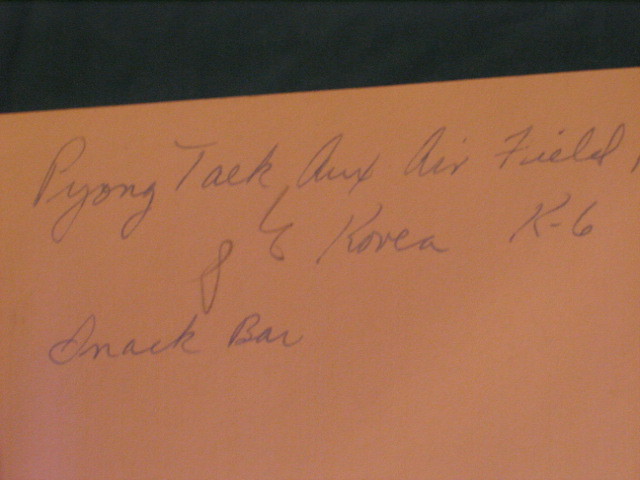 Pyong Taek Aux Air Field
Korea K-6
Snack Bar